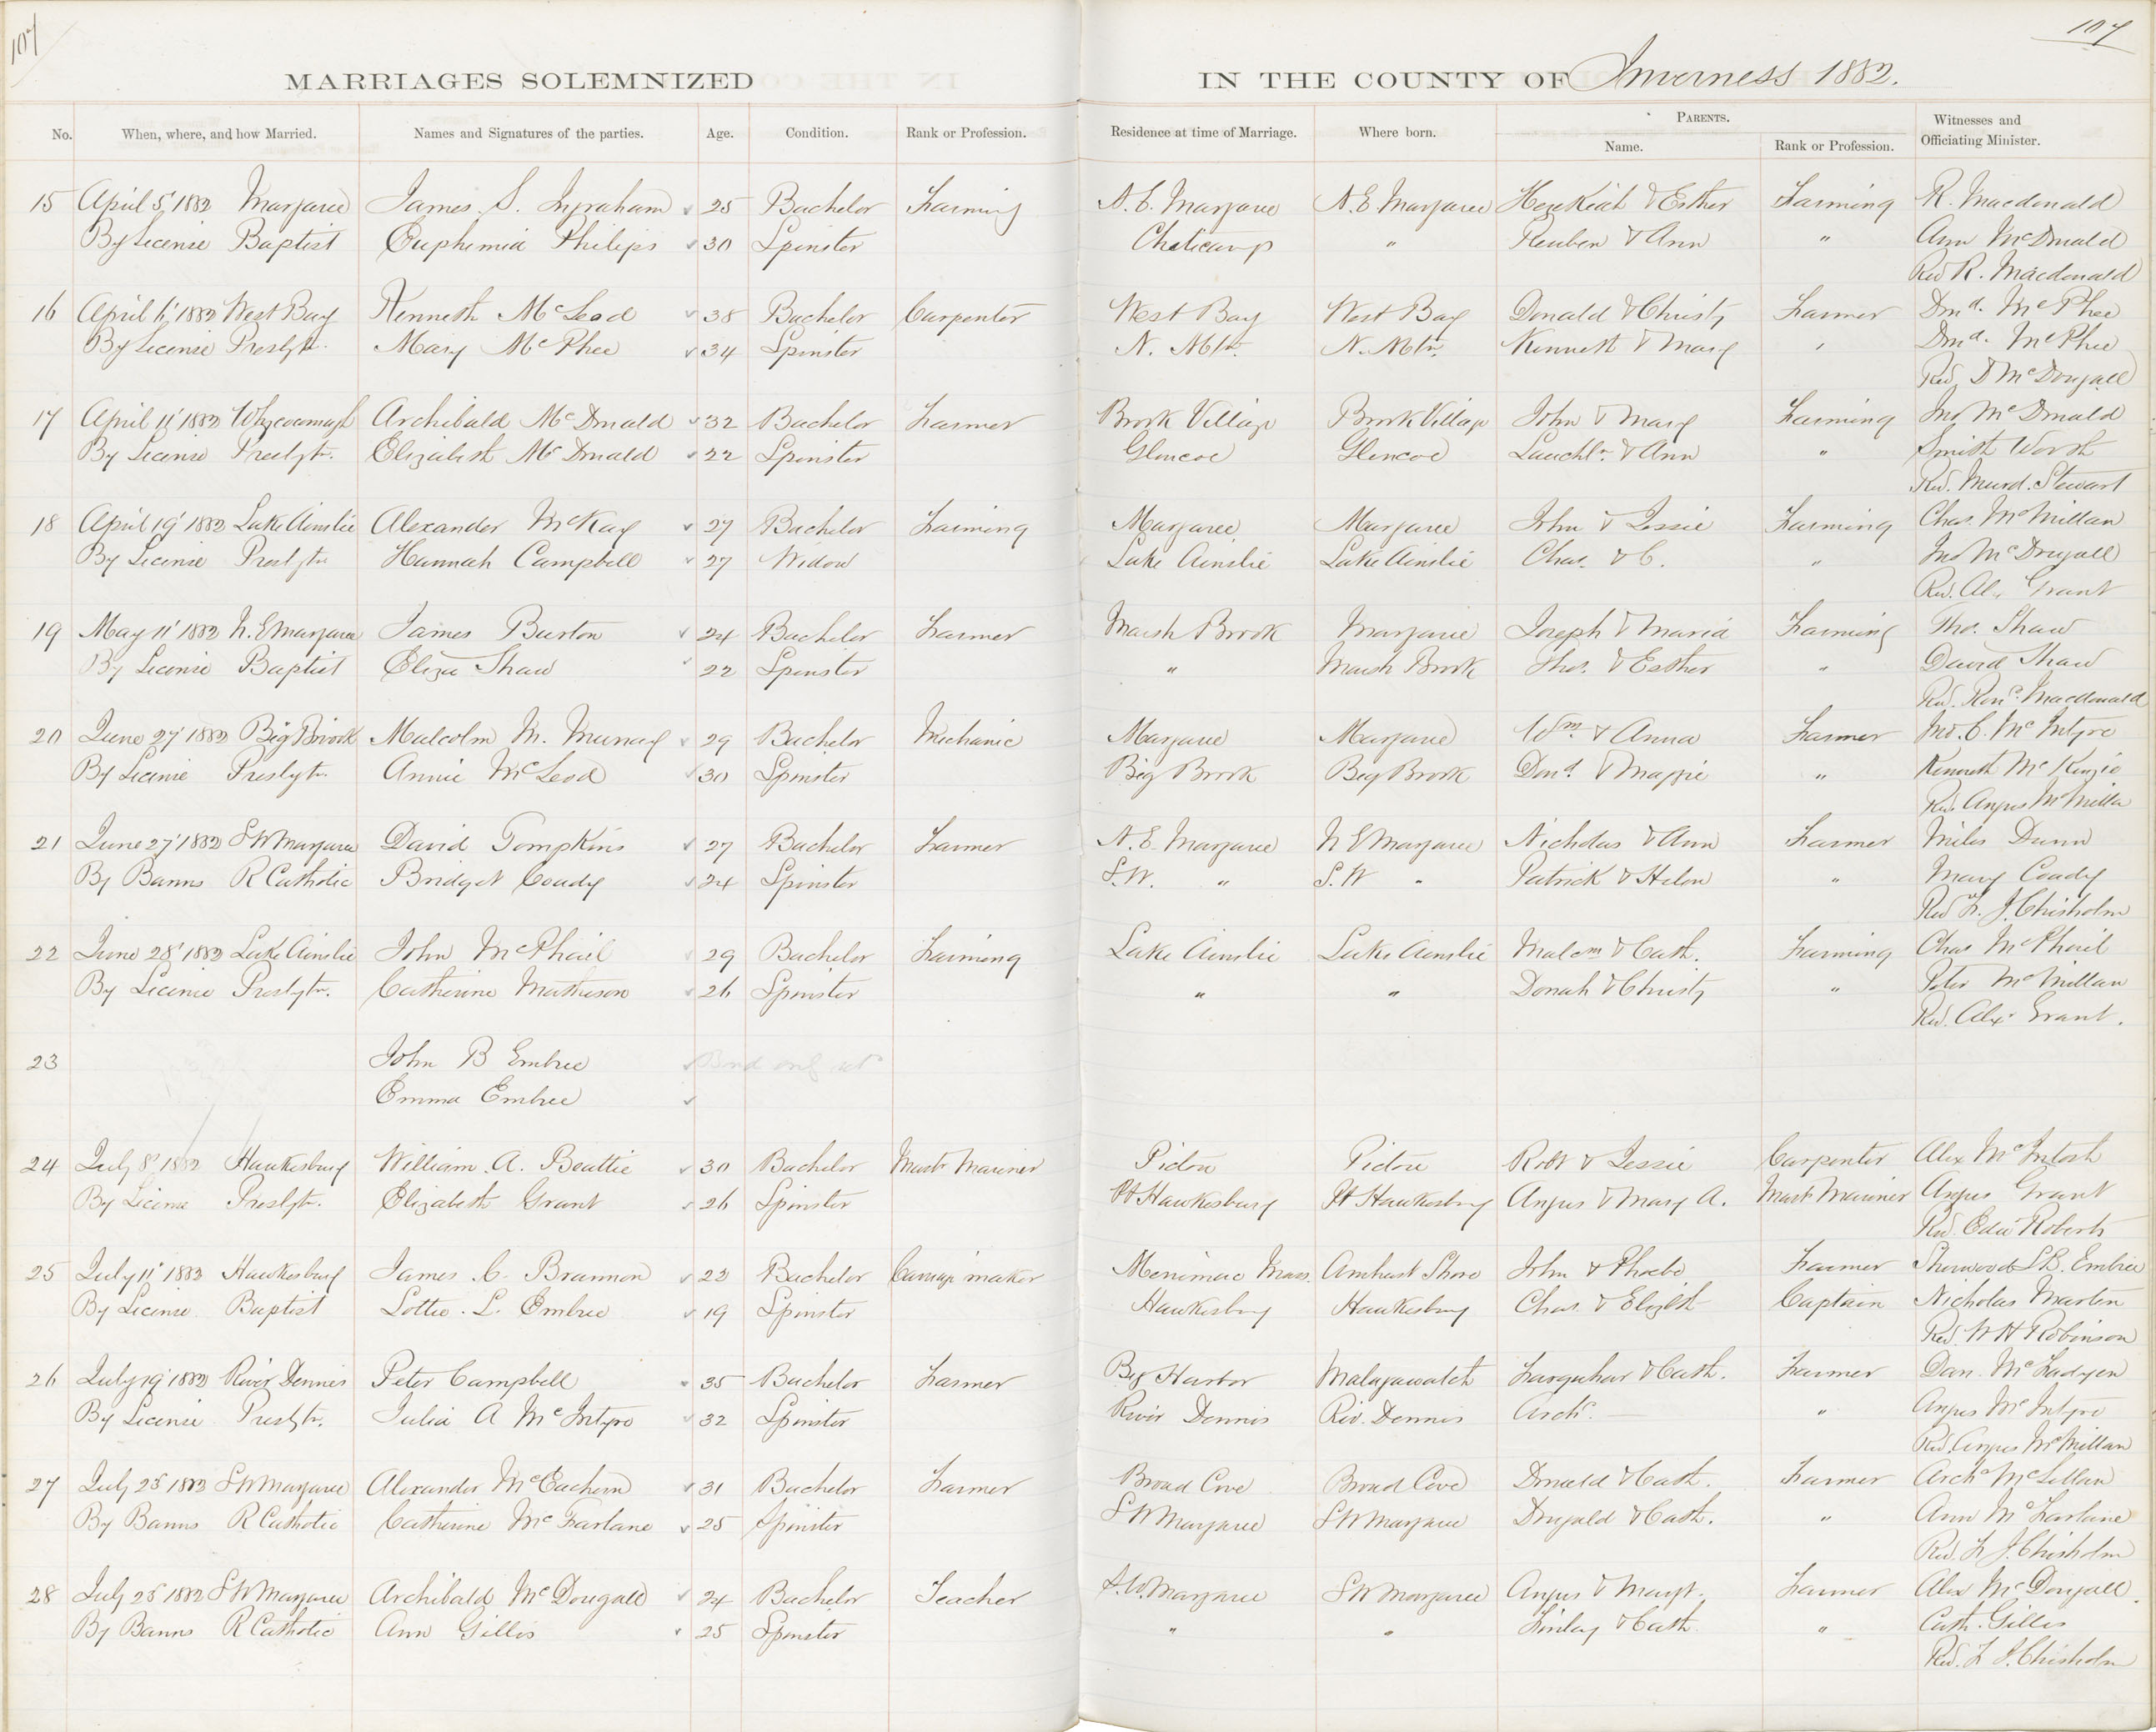 107
107
MARRIAGES SOLEMNIZED IN THE COUNTY OF Inverness 1882.
No. When, where, and how Married. Names and Signatures of the parties. Age. Condition. Rank or Profession. Residence at time of Marriage. Where born. PARENTS. Name. Rank or Profession. Witnesses and Officiating Minister.
15 April 5' 1882 Margaree James S. Ingraham 25 Bachelor Farming N. E. Margaree N. E Margaree Hezekiah & Esther Farming R. Macdonald
By License Baptist Euphemia Philips 30 Spinster Cheticamp " Reuben & Ann " Ann McDonald
Rev R. Macdonald
16 April 6' 1882 West Bay Kenneth McLeod 38 Bachelor Carpenter West Bay West Bay Donald & Christy Farmer Dond. McPhee
By License Presbytn. Mary McPhee 34 Spinster N. Mtn. N. Mtn. Kenneth & Mary " Dond. McPhee
Rev D McDougall
17 April 11' 1882 Whycocomagh Archibald McDonald 32 Bachelor Farmer Brook Village Brook Village John & Mary Farming Jno McDonald
By License Presbytn. Elizabeth McDonald 22 Spinster Glencoe Glencoe Lauchln. & Ann " Smith
Rev. Murd. Stewart
18 April 19' 1882 Lake Ainslie Alexander McKay 27 Bachelor Farming Margaree Margaree John & Jessie Farming Chas. McMillan
By License Presbytn Hannah Campbell 27 Widow Lake Ainslie Lake Ainslie Chas. & C. " Jno McDougall
Rev. Alx Grant
19 May 11' 1882 N. E Margaree James Burton 24 Bachelor Farmer Marsh Brook Margaree Joseph & Maria Farming Tho. Shaw
By License Baptist Eliza Shaw 22 Spinster " Marsh Brook Thos. & Esther " David Shaw
Rev. Macdonald
20 June 27' 1882 Big Brook Malcolm M. Murray 29 Bachelor Mechanic Margaree Margaree Wm. & Anna Farmer Jno. C. McIntyre
By License Presbytn. Annie McLeod 30 Spinster Big Brook Big Brook Dond. & Maggie " Kenneth McKenzie
Rev. Angus McMilla
21 June 27' 1882 S W Margaree David Tompkins 27 Bachelor Farmer N. E. Margaree N E Margaree Nicholas & Ann Farmer Miles Dunn
By Banns R Catholic Bridget Coady 24 Spinster S.W. " S. W " Patrick & Helen " Mary Coady
Rev F. J. Chisholm
22 June 28' 1882 Lake Ainslie John McPhail 29 Bachelor Farming Lake Ainslie Lake Ainslie Malcm & Cath. Farming Chas McPhail
By License Presbytn. Catherine Matheson 26 Spinster " " Donah & Christy " Peter McMillan
Rev. Alx. Grant.
23 John B Embree Bond only ret
Emma Embree
24 July 8' 1882 Hawkesbury William A. Beattie 30 Bachelor Mastr Mariner Pictou Pictou Robt & Jessie Carpenter Alex McIntosh
By License Presbytn. Elizabeth Grant 26 Spinster Pt Hawkesbury Pt Hawkesbury Angus & Mary A. Mastr Mariner Angus Grant
Rev. Edw Roberts
25 July 11' 1882 Hawkesbury James C. Brannon 23 Bachelor Carriage maker Merrimac Mass. Amherst Shore John & Phoebe Farmer Sherwood S B. Embree
By License Baptist Lottie L. Embree 19 Spinster Hawkesbury Hawkesbury Chas. & Elizbth Captain Nicholas Martin
Rev. W H Robinson
26 July 19' 1882 River Dennis Peter Campbell 35 Bachelor Farmer Big Harbor Malagawatch Farquhar & Cath. Farmer Dan. McFadyen
By License Presbytn. Julia A McIntyre 32 Spinster River Dennis Riv. Dennis Archd. " Angus McIntyre
Rev. Angus McMillan
27 July 25' 1882 S W Margaree Alexander McEachern 31 Bachelor Farmer Broad Cove Broad Cove Donald & Cath. Farmer Archd McLellan
By Banns R Catholic Catherine McFarlane 25 Spinster S W Margaree S W Margaree Dugald & Cath. " Ann McFarlane
Rev. F J. Chisholm
28 July 25' 1882 S W Margaree Archibald McDougall 24 Bachelor Teacher S. W. Margaree S W Margaree Angus & Margt. Farmer Alex McDougall.
By Banns R Catholic Ann Gillis 25 Spinster " " Finlay & Cath. " Cath. Gillis
Rev. F J. Chisholm